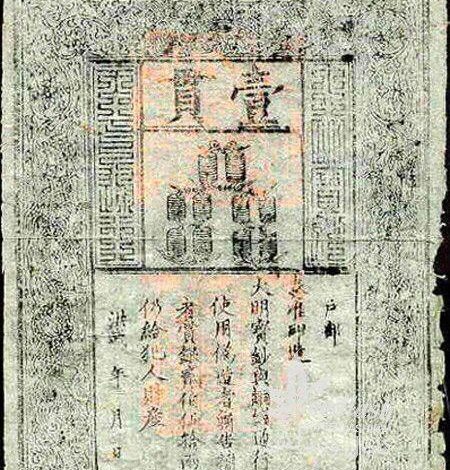 壹貫
戶部
奏准印造
大明寶鈔與銅錢通行
使用偽造者斬告
者賞銀貳佰伍拾兩
仍給犯人財產
洪武 年 月 日